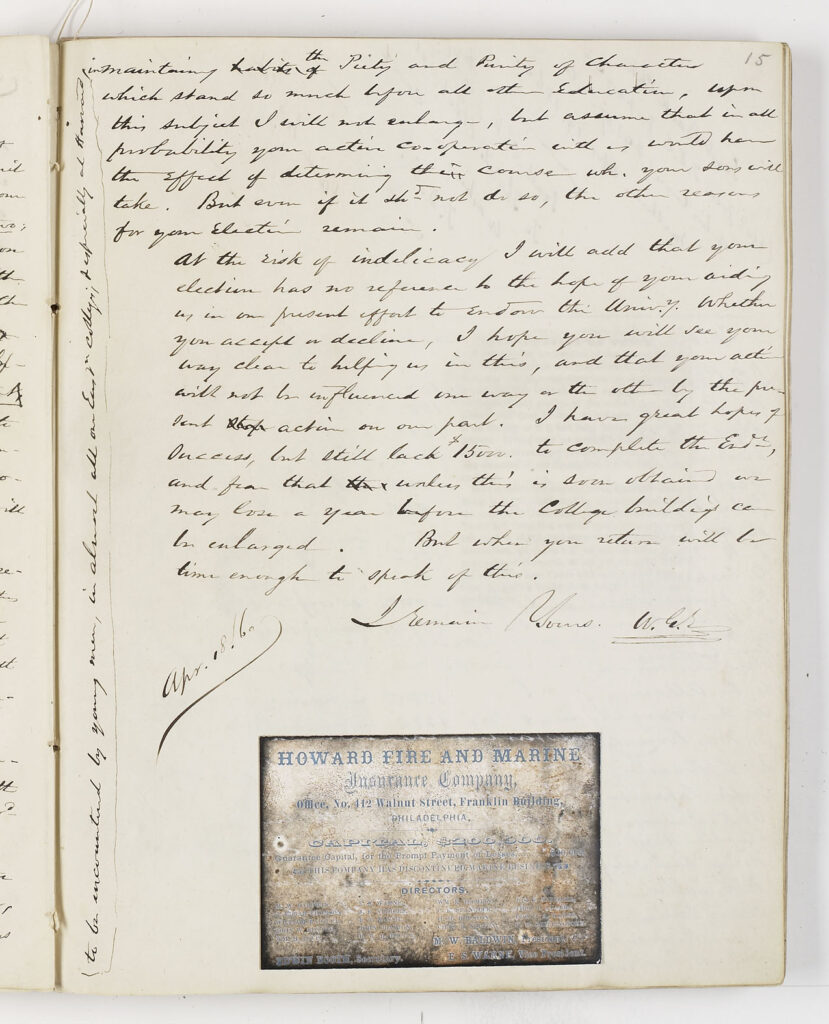 15
maintaining habits of th Piety and Purity of Character
which stand so much before all other Education, upon
this subject I will not enlarge, but assume that in all
probability your active cooperation with us would have
the Effect of determining their course wh. your sons will
take. But even if it shd not do so, the other reasons
for your Election remain.
At the risk of indelicacy I will add that your
election has no reference to the hope of your aiding
us in our present effort to Endow the Univy. Whether
you accept or decline, I hope you will see your
way clear to helping us in this, and that your action
will not be influenced one way or the other by the pre-
sent action on our part. I have great hopes of
Success, but still lack $15000. to complete the Endt,
and fear that unless this is soon obtained we
may lose a year before the College buildings can
be enlarged. But when you return will be
time enough to speak of this.
I remain Yours.
Apr. 18. /60
(to be encountered by young men, in almost all our Eastn colleges, & especially at Harvard) in
HOWARD FIRE AND MARINE
Insurance Company,
Office, No. 412 Walnut Street, Franklin Building,
PHILADELPHIA,
CAPITAL, $200,000.
Guarantee Capital, for the Prompt Payment of
THIS COMPANY HAS DISCONTINUED MARINE
DIRECTORS.
M. W. BALDWIN,
Secretary. P. S. Vice President.